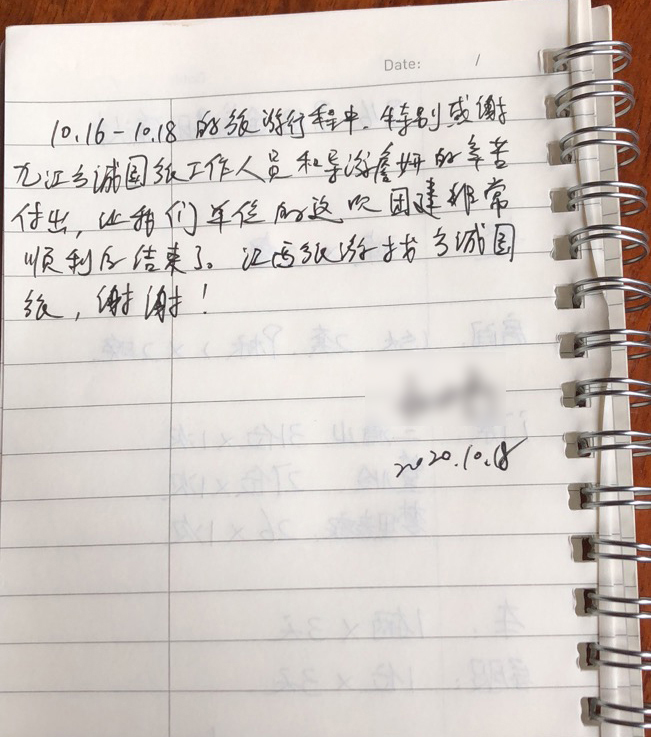 Date: /
10.16-10.18 的旅游行程中,特别感谢
九江方诚国旅工作人员和导游詹妍的辛苦
付出,让我们单位的这次团建非常
顺利的结束了。江西旅游找方诚国
旅,谢谢!
2020.10.18